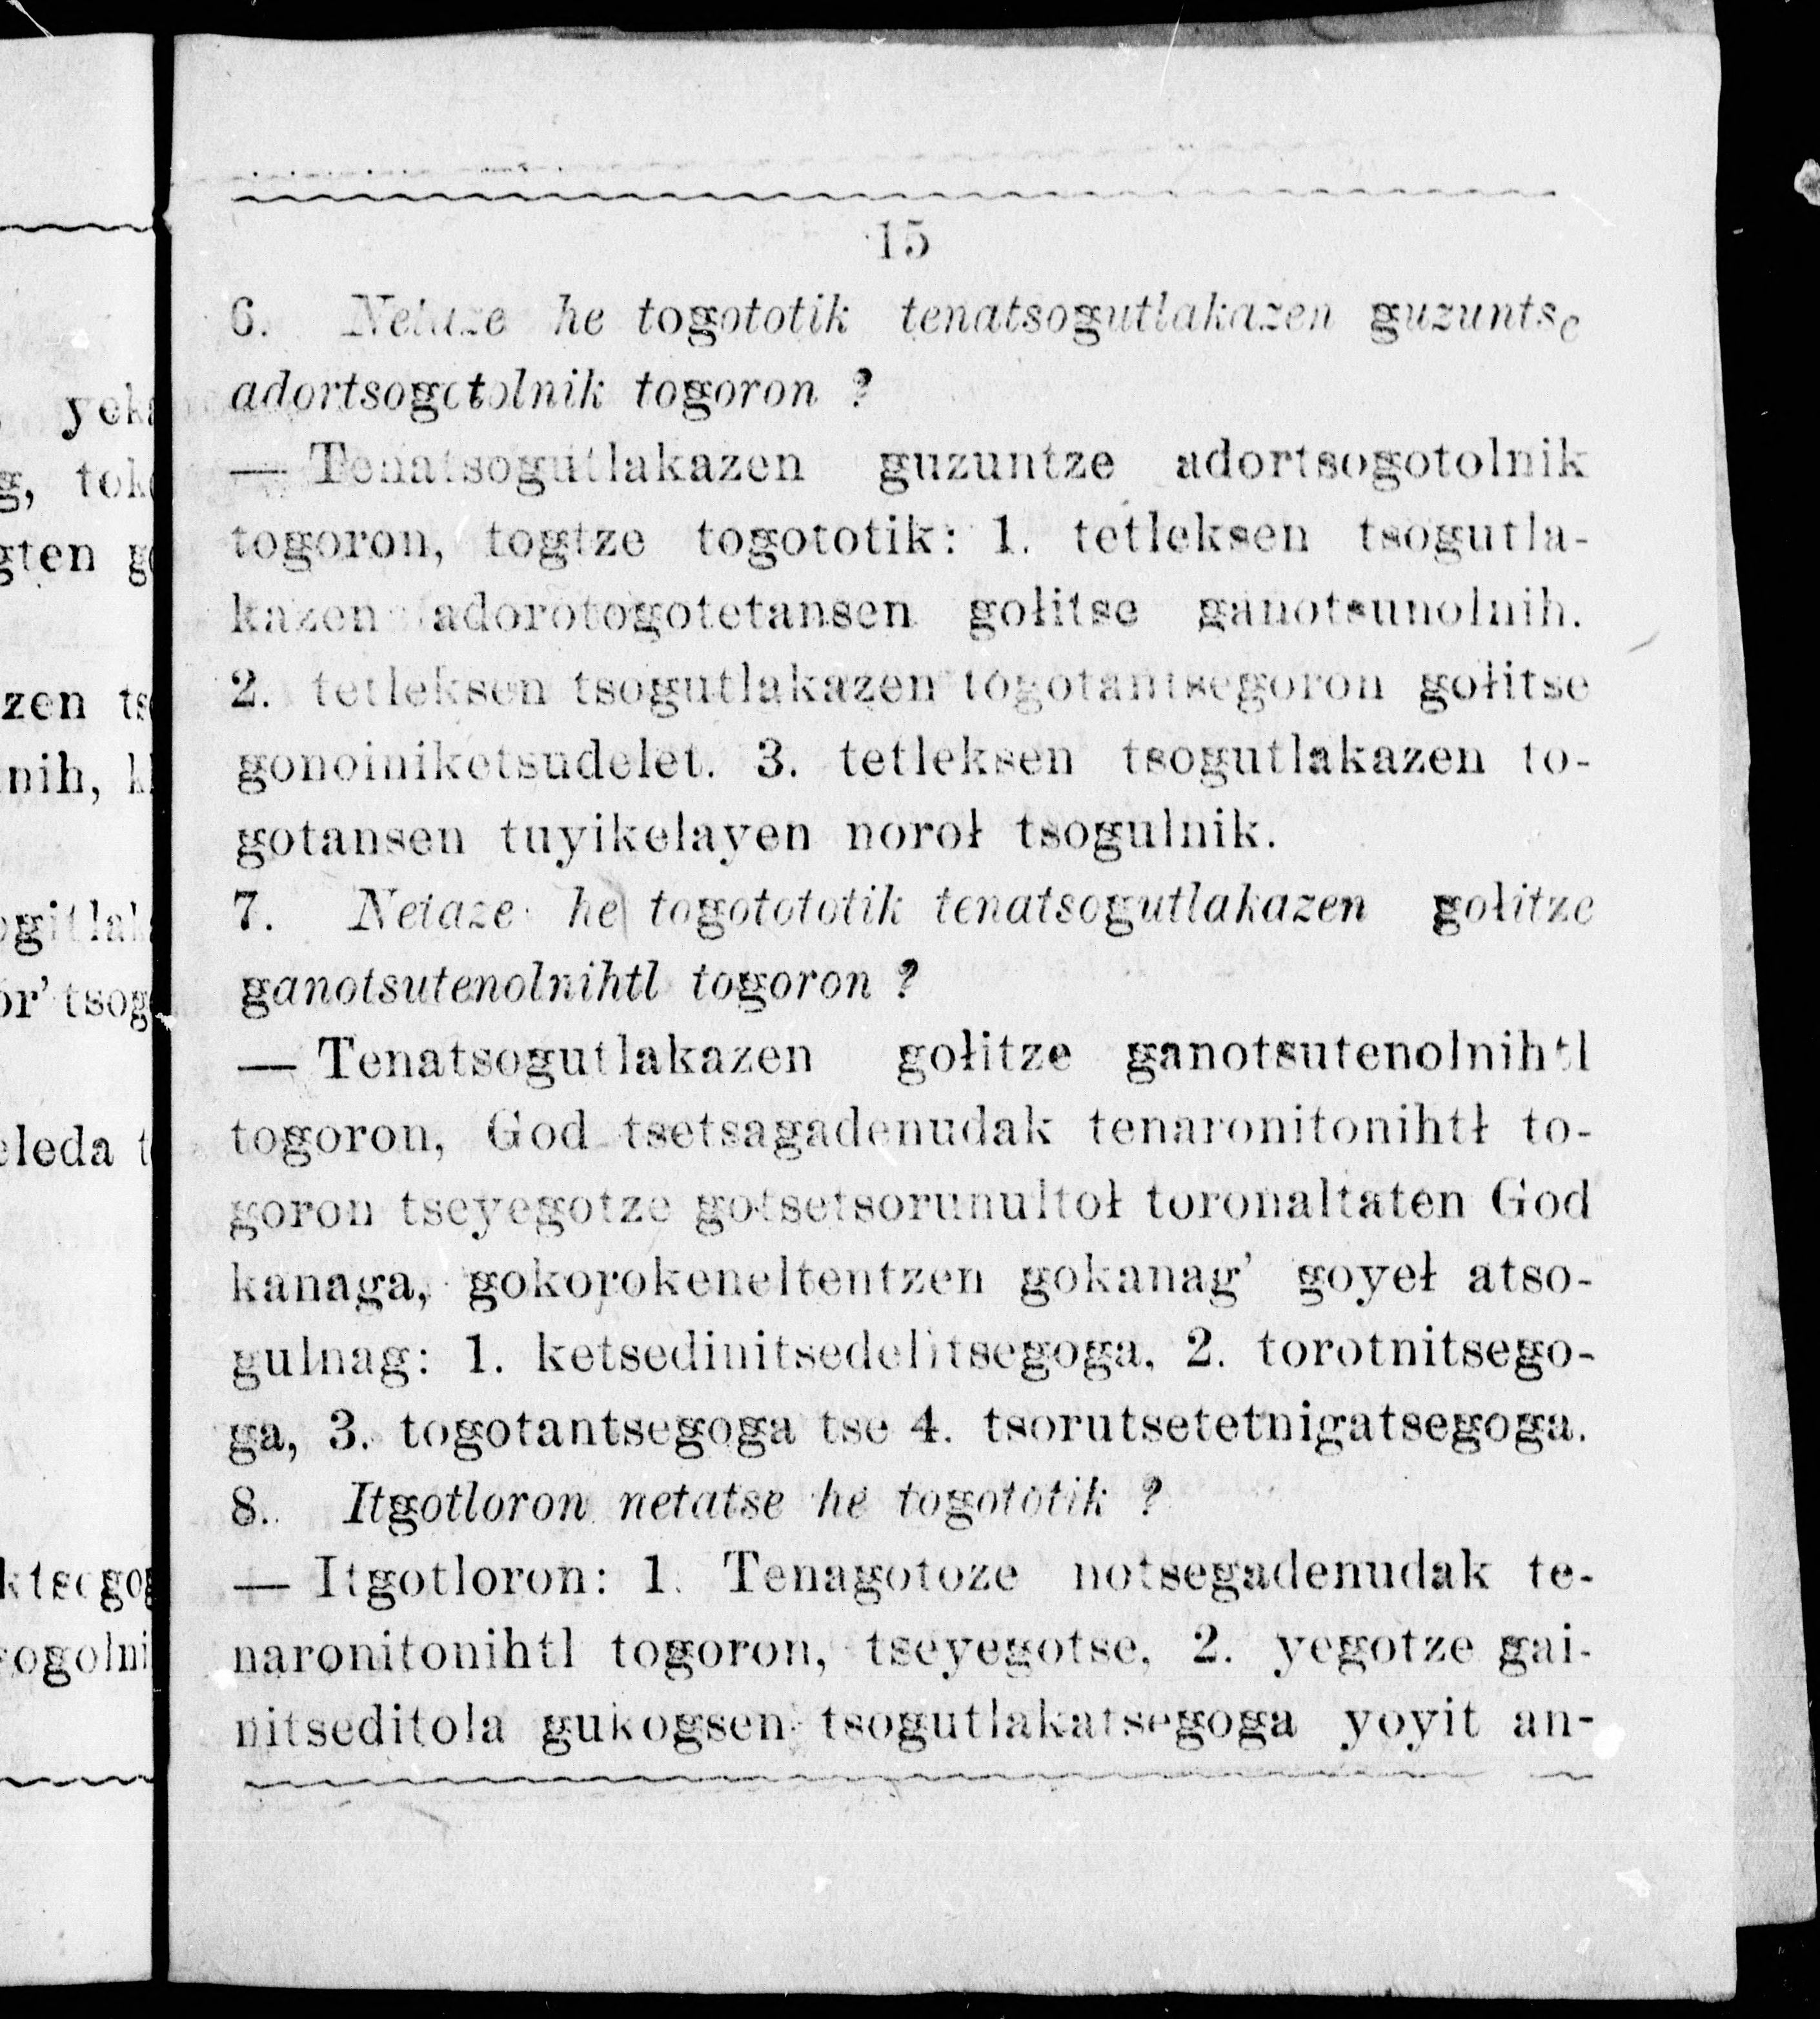 15
6. Netaze he togototik tenatsogutlakazen guzuntse
adortsogotolnik togoron ?
— Tenatsogutlakazen guzuntze adortsogotolnik
togoron, togtze togototik: 1. tetleksen tsogutla-
kazen adorotogotetansen gołitse ganotsunolnih.
2. tetleksen tsogutlakazen togotantsegoron gołitse
gonoiniketsudelet. 3. tetleksen tsogutlakazen to-
gotansen tuyikelayen noroł tsogulnik.
7. Netaze he togotototik tenatsogutlakazen gołitze
ganotsutenolnihtl togoron ?
— Tenatsogutlakazen gołitze ganotsutenolnihtl
togoron, God tsetsagadenudak tenaronitonihtł to-
goron tseyegotze gotsetsorunultoł toronaltaten God
kanaga, gokorokeneltentzen gokanag' goyeł atso-
gulnag: 1. ketsedinitsedelitsegoga, 2. torotnitsego-
ga, 3. togotantsegoga tse 4. tsorutsetetnigatsegoga.
8. Itgotloron netatse he togototik ?
— Itgotloron: 1. Tenagotoze notsegadenudak te-
naronitonihtl togoron, tseyegotse, 2. yegotze gai-
nitseditola gukogsen tsogutlakatsegoga yoyit an-